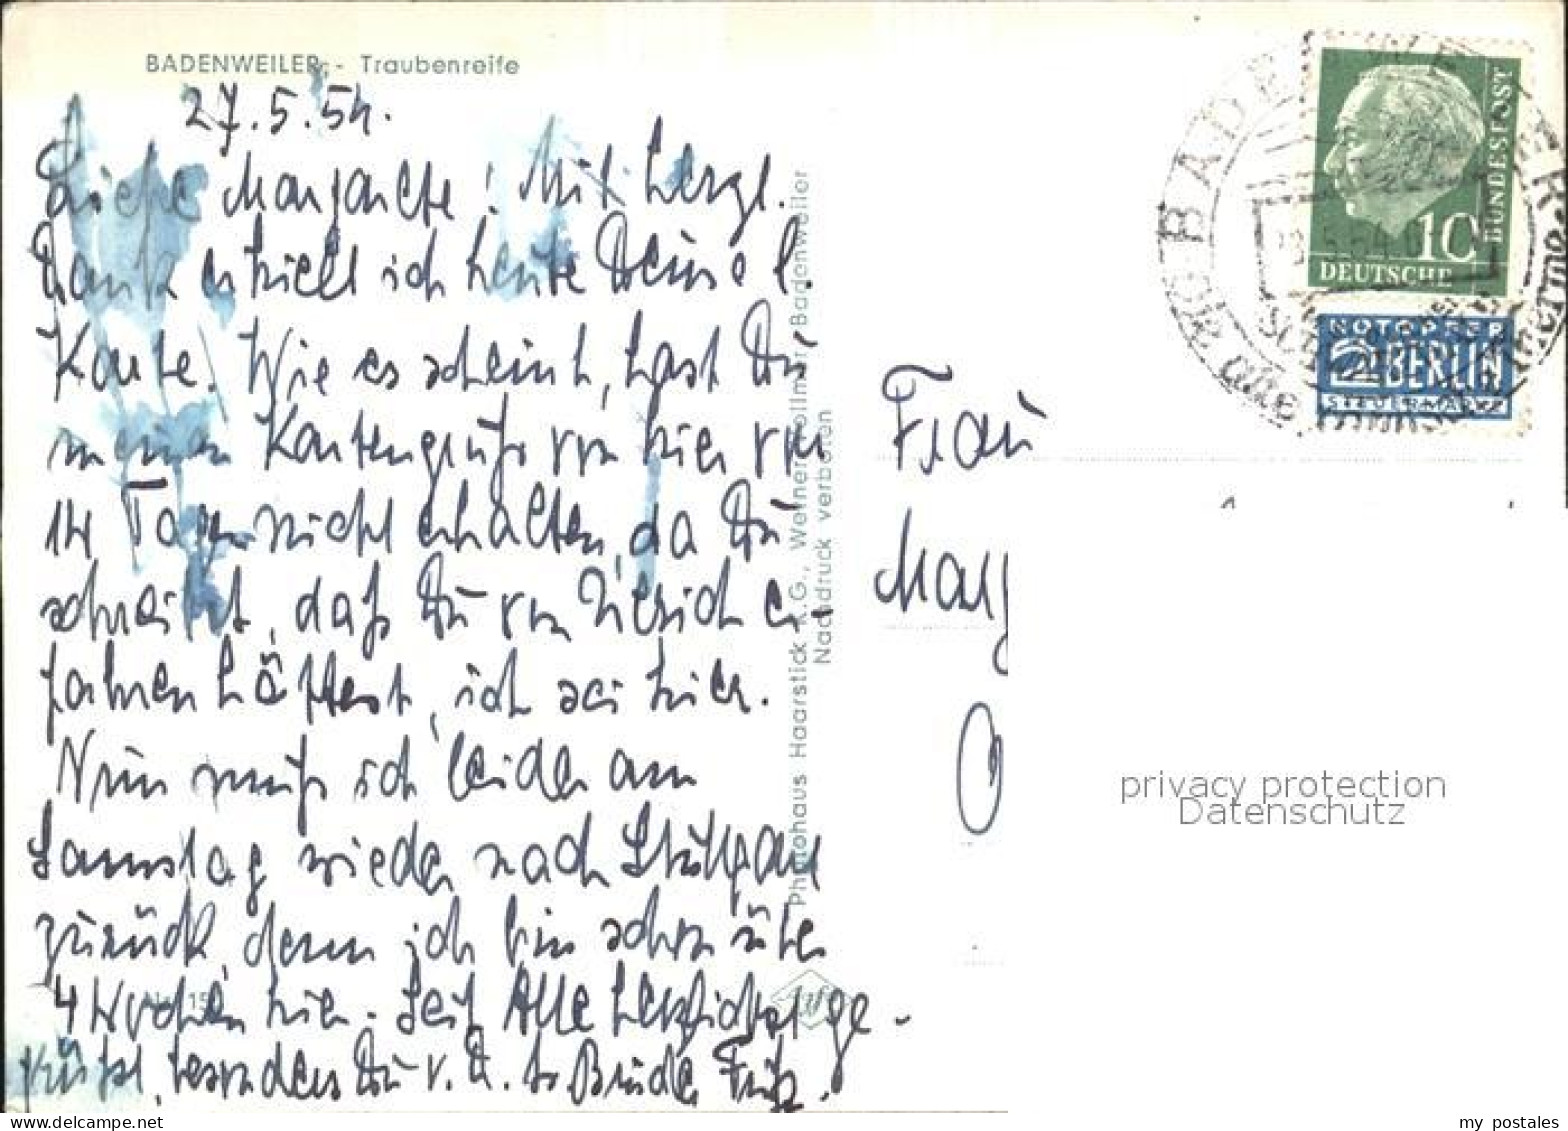 BADENWEILER,- Traubenreife
27.5.54.
Liebe Margarete! Mit herzl.
Dank erhielt ich heute Deine l.
Karte. Wie es scheint, hast Du
meinen Kartengruß von hier vor
14 Tagen nicht erhalten, da Du
schreibst, daß Du von Zürich er-
fahren hättest, ich sei hier.
Nun muß ich leider am
Samstag wieder nach Stuttgart
zurück, denn ich bin schon über
4 Wochen hier. Seit Alle herzlichst ge-
küßt, besonders Du v. D. tr. Bruder Fritz.
Photohaus Haarstick K.G., Werner Vollmer, Badenweiler
Nachdruck verboten
Frau
Marg
BADENWEILER
DEUTSCHE
BUNDESPOST
10
NOTOPFER
2 BERLIN
STEUERMARKE
privacy protection
Datenschutz
my postales
www.delcampe.net